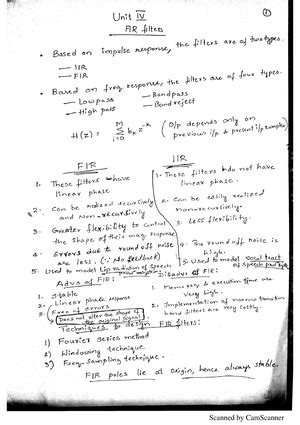 ①
Unit IV
FIR filters
• Based on impulse response, the filters are of two types.
— IIR
— FIR
• Based on freq. response, the filters are of four types.
— Lowpass — Bandpass
— High pass — Bandreject
H(z) = Σ b_k z^-k (O/p depends only on
M
i=0
previous i/p & present i/p samples)
FIR
1. These filters have
linear phase
2. Can be realized recursively
and non-recursively
3. Greater flexibility to control
the shape of their mag response
4. Errors due to round off noise
are less. (∵ No feedback)
5. Used to model lip radiation of speech
IIR
1. These filters do not have
linear phase.
2. Can be easily realized
nonrecursively.
3. Less flexibility.
4. The round off noise is
high.
5. Used to model vocal tract
of speech
Advs of FIR:
1. Stable
2. Linear phase response
3. Free of errors
Does not alter the shape of
the original signal
Disadvs of FIR:
1. Memory & execution time are
very high.
2. Implementation of narrow transition
band filters are very costly.
Techniques to design FIR filters:
1) Fourier series method
2) Windowing technique
3) Freq. sampling technique.
FIR poles lie at origin, hence always stable.
Scanned by CamScanner